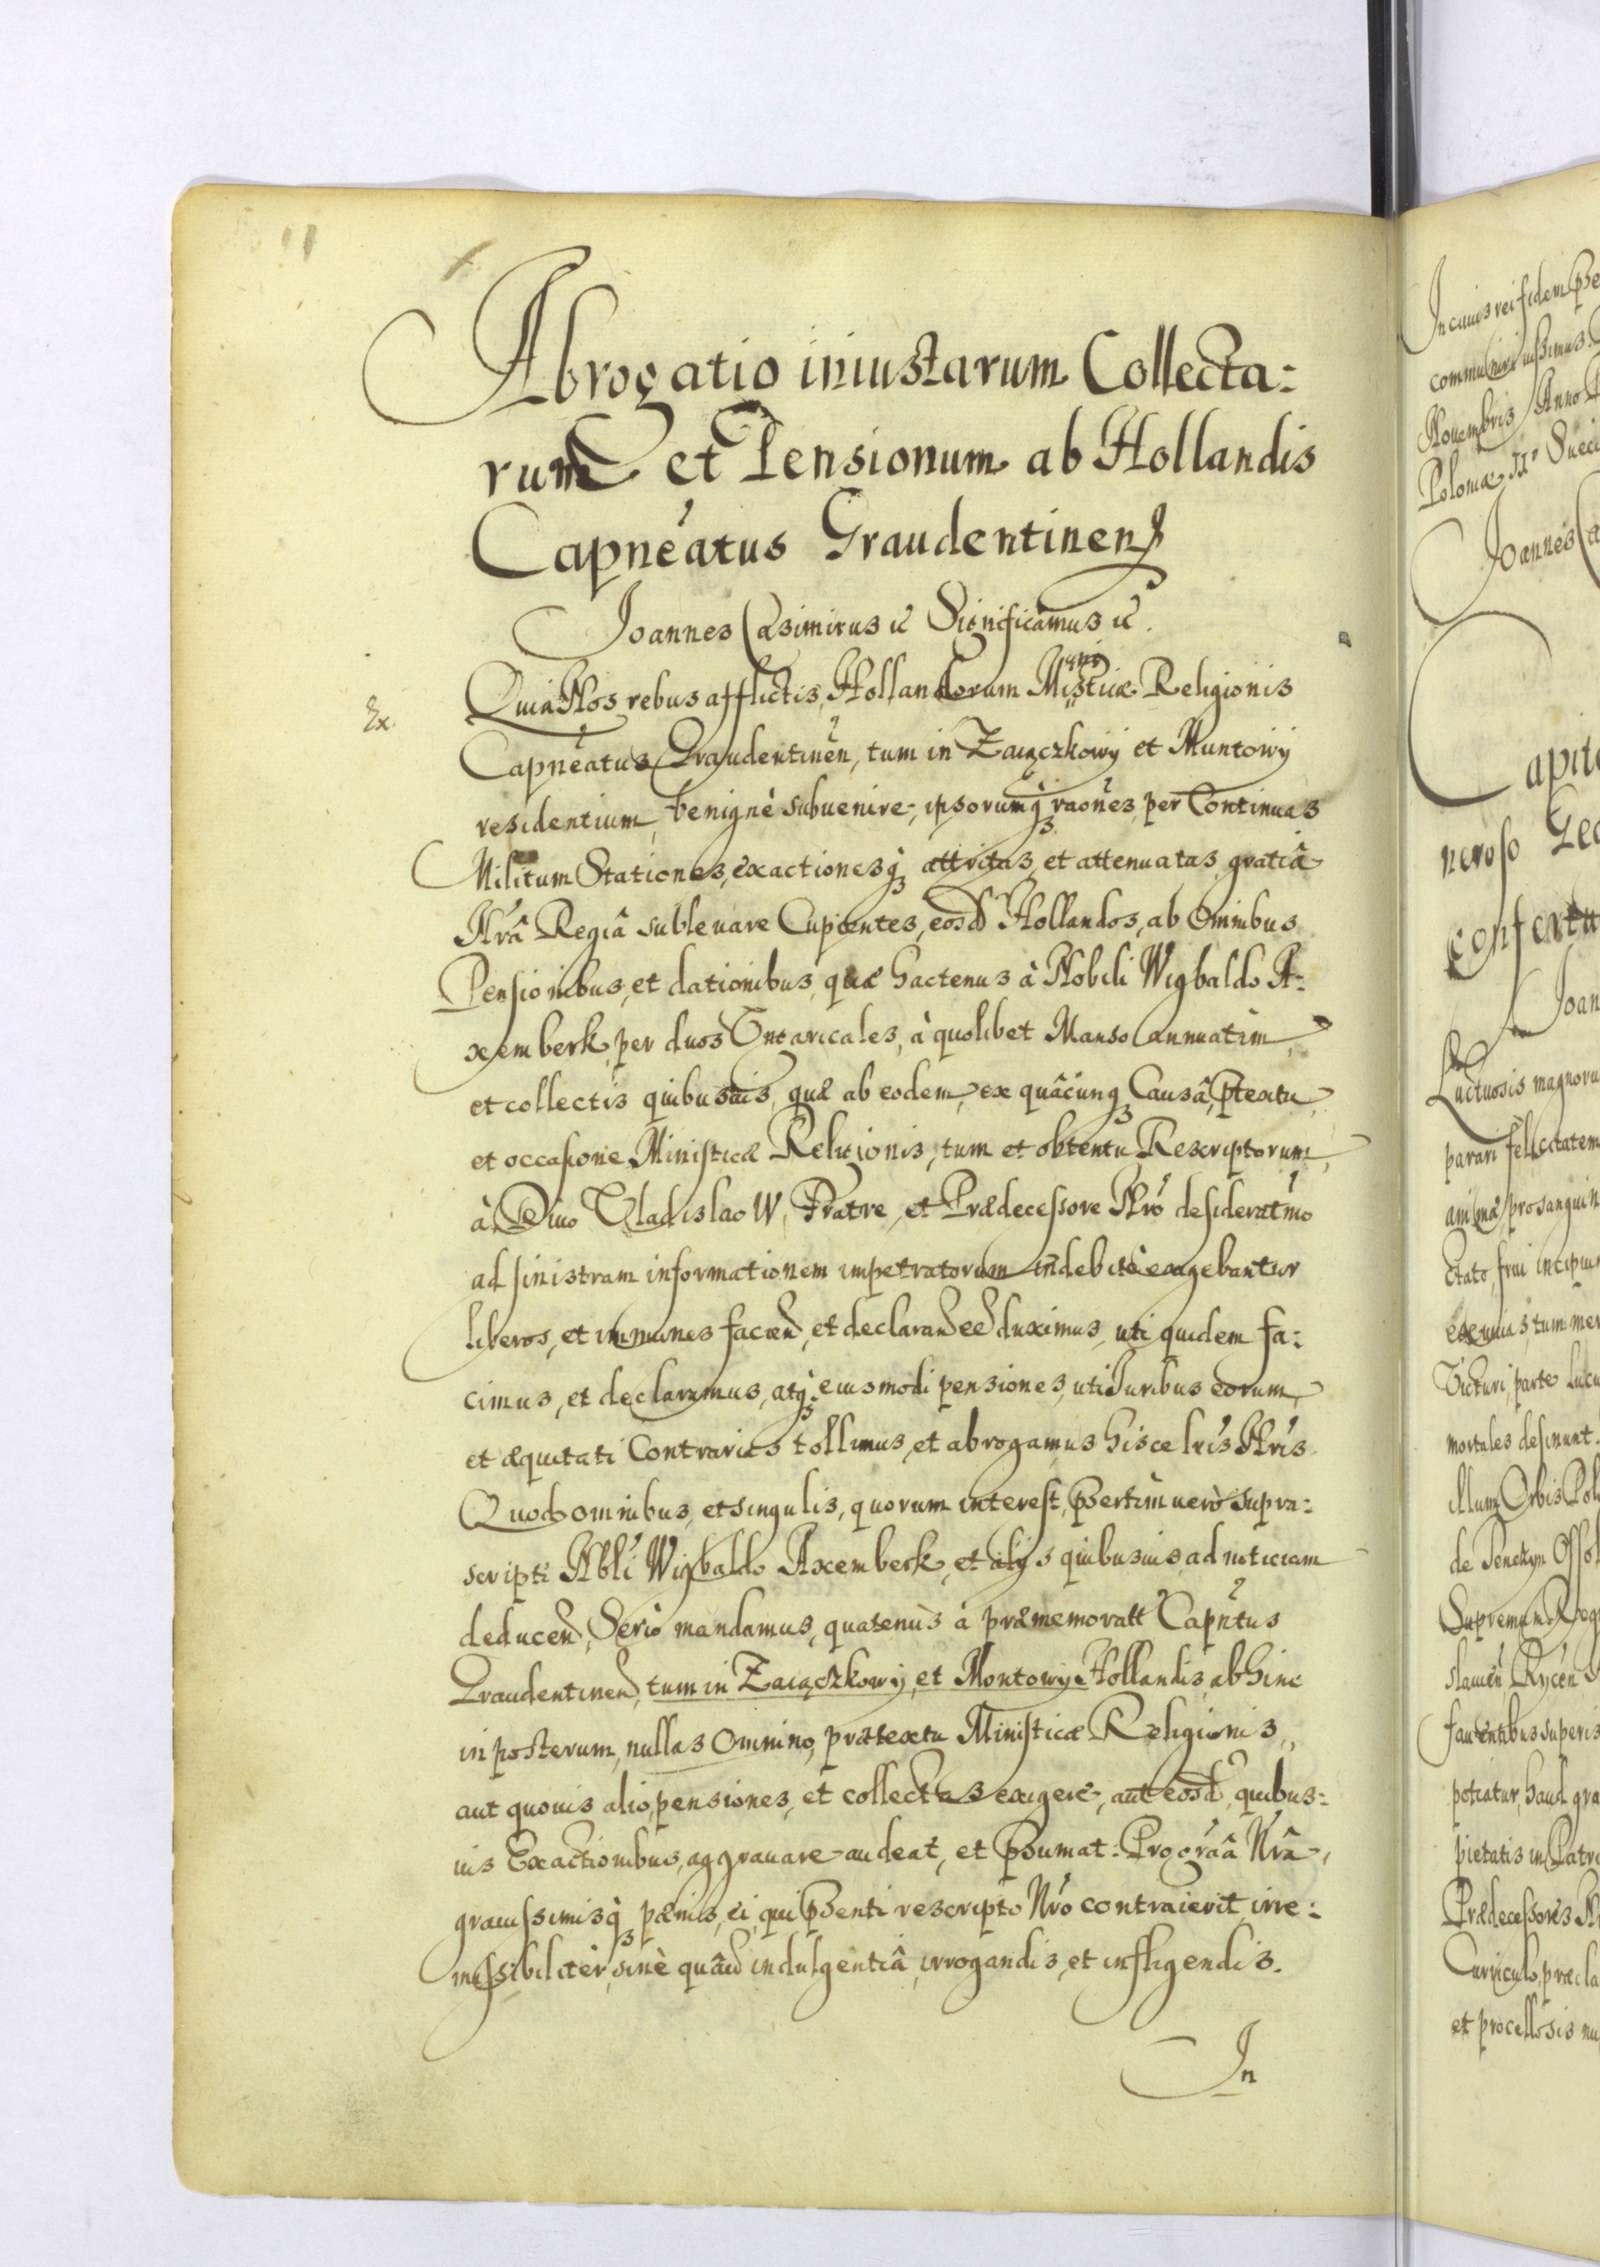 11
Abrogatio iniustarum Collecta:
rum et Pensionum ab Hollandis
Capneatus Graudentinen
Joannes Casimirus etc Significamus etc.
Ex.
Quia Nos rebus afflictis, Hollandorum Misticæ Religionis
Capneatus Graudentinen, tum in Zaiączkowÿ et Muntowÿ
residentium, benignè subuenire, ipsorumq; raones, per Continuas
Militum Stationes, exactionesq; attritas, et attenuatas, gratiâ
Nrâ Regiâ subleuare Cupientes, eosd Hollandos, ab Omnibus
Pensionibus, et dationibus, quæ hactenus à Nobili Wigbaldo A:
xemberk, per duos Vntaricales, à quolibet Manso annuatim,
et collectis quibusuis, quæ ab eodem, ex quâcunq; Causâ, ptextu,
et occasione Ministicæ Religionis, tum et obtentu Rescriptorum,
à Diuo Vladislao IV, Fratre, et Prædecessore Nro desideratmo
ad sinistram informationem impetratorum indebitè exigebantur
liberos, et immunes facien, et declaran eê duximus, uti quidem fa:
cimus, et declaramus, atq; eiusmodi pensiones, uti Iuribus eorum,
et æquitati Contrarias tollimus, et abrogamus hisce lris Nris
Quod omnibus, et singulis, quorum interest, psertim uerò supra:
scripti Nbli Wigbaldo Axemberk, et alÿs quibusuis, ad noticiam
deducen, Seriò mandamus, quatenùs à præmemoratt Capntus
Graudentinen, tum in Zaiączkowÿ, et Montowÿ Hollandis, ab hinc
in posterum, nullas omnino, prætextu Ministicæ Religionis,
aut quouis alio, pensiones, et collectas exigere, aut eosd, quibus:
uis Exactionibus, aggrauare audeat, et psumat: Pro grâa Nrâ,
grauissimisq; pænis, ei, qui psenti rescripto Nro contraierit, irre:
missibilitèr, sinè quâuis indulgentiâ, irrogandis, et infligendis.
In
In cuius rei fidem
Nouembris Anno
Poloniæ
Joannes
neroso
Joan
Luctuosis magnoru
parari felicitatem
mortales desinunt.
de Tenczyn Ossol
fauentibus superis
potiatur, haud gra
pietatis in Patri
Prædecessoris
Curriculo, præcla
et procellosis nu